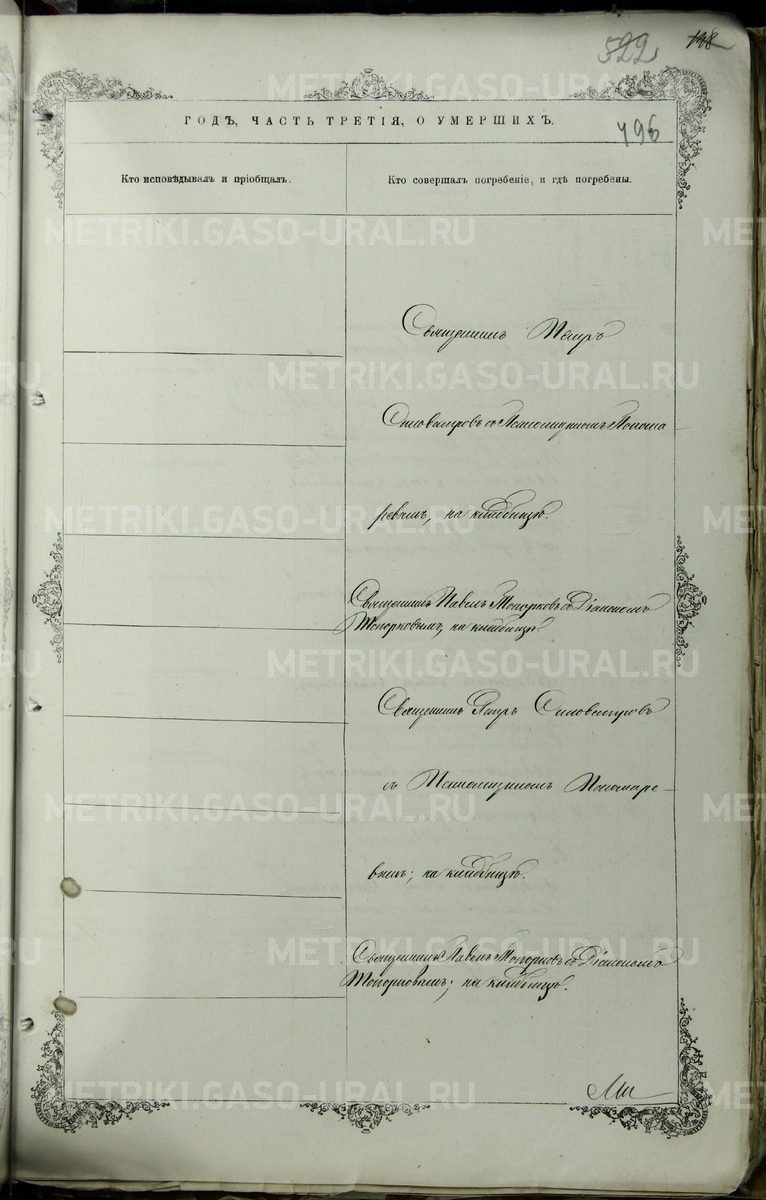 522 198
ГОДЪ, ЧАСТЬ ТРЕТІЯ, О УМЕРШИХЪ.
496
Кто исповѣдывалъ и пріобщалъ.
Кто совершалъ погребеніе, и гдѣ погребены.
Священникъ Петръ
Силовестровъ съ Псаломщикомъ Понома
ревымъ, на кладбищѣ.
Священникъ Павелъ Топорковъ съ Діакономъ
Топорковымъ, на кладбищѣ.
Священникъ Петръ Силовестровъ
съ Псаломщикомъ Пономаре
вымъ; на кладбищѣ.
Священникъ Павелъ Топорковъ съ Діакономъ
Топорковымъ; на кладбищѣ.
METRIKI.GASO-URAL.RU